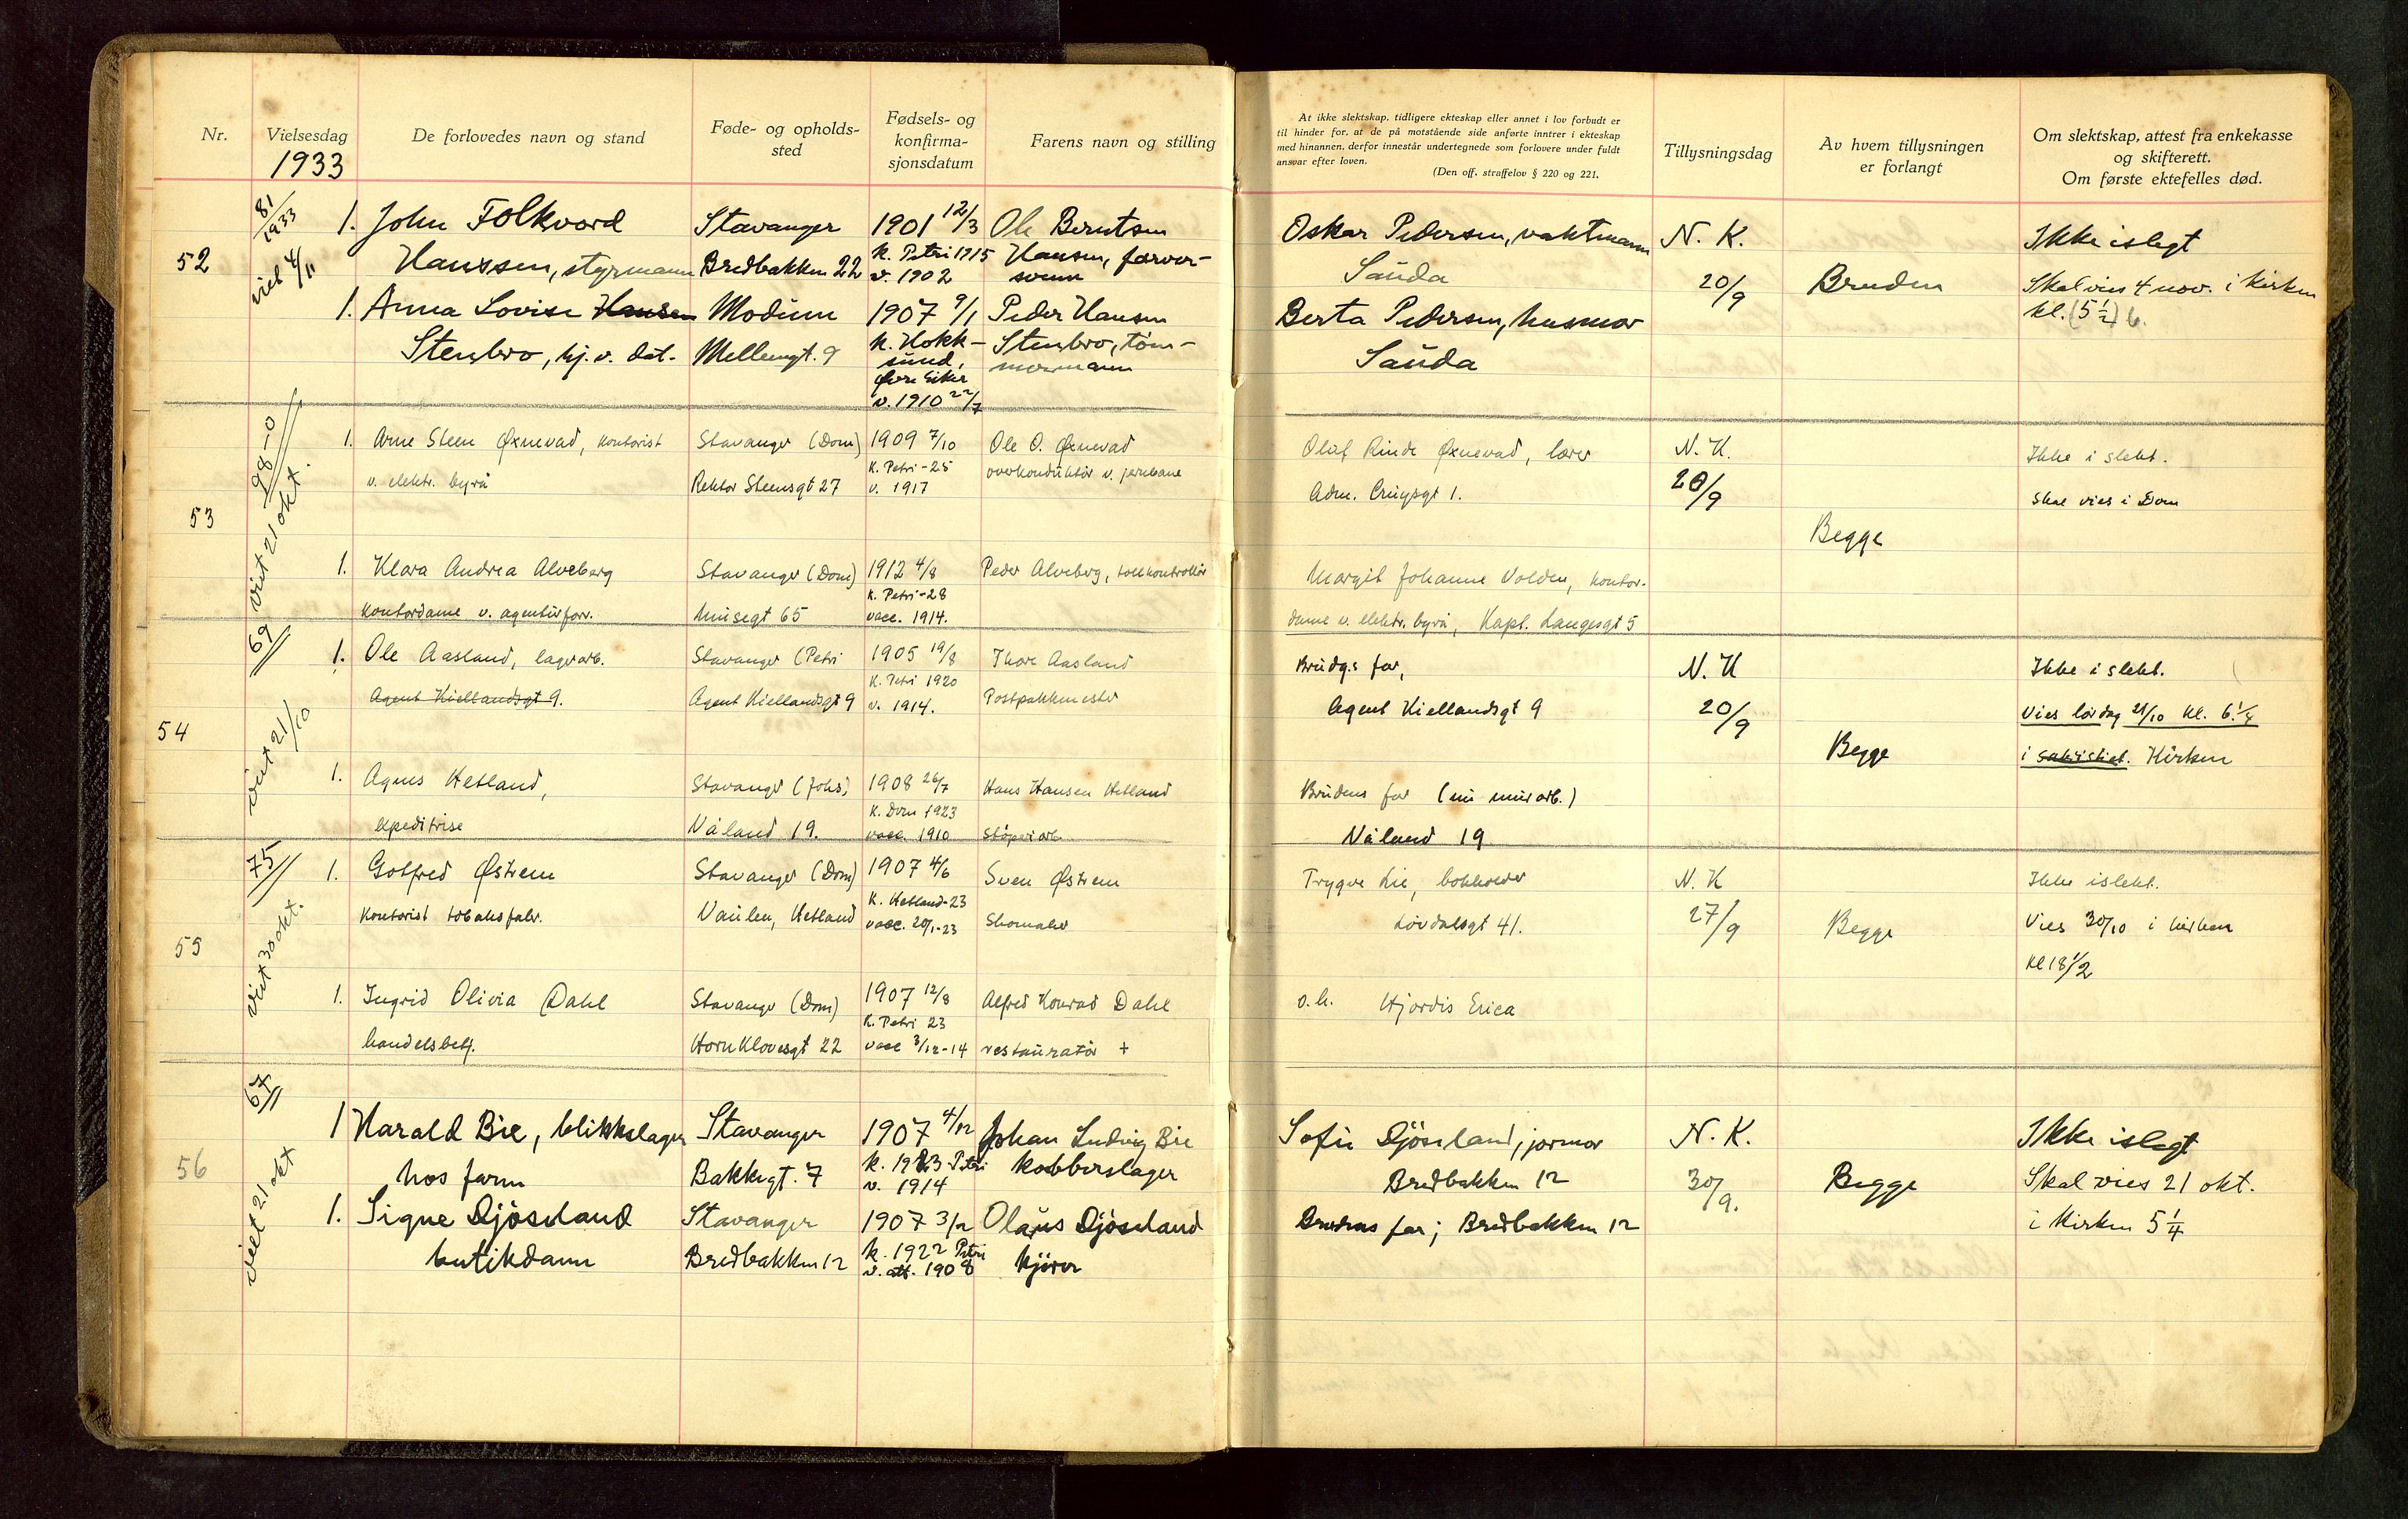 Nr.
Vielsesdag
1933
De forlovedes navn og stand
Føde- og opholds-
sted
Fødsels- og
konfirma-
sjonsdatum
Farens navn og stilling
At ikke slektskap, tidligere ekteskap eller annet i lov forbudt er
til hinder for, at de på motstående side anførte inntrer i ekteskap
med hinannen, derfor innestår undertegnede som forlovere under fuldt
ansvar efter loven.
(Den off. straffelov § 220 og 221.
Tillysningsdag
Av hvem tillysningen
er forlangt
Om slektskap, attest fra enkekasse
og skifterett.
Om første ektefelles død.
52
81/1933
viet 4/11
1. John Folkvord
Hanssen, styrmann
Stavanger
Bredbakken 22
1901 12/3
k. Petri 1915
v. 1902
Ole Berntsen
Hansen, farver-
svenn
1. Anna Lovise Hansen
Stenbro, hj. v. det.
Modum
Mellemgt. 9
1907 9/1
k. Hokk-
sund,
Øvre Eiker
v. 1910 22/7
Peder Hansen
Stenbro, töm-
mermann
Oskar Pedersen, vaktmann
Sauda
Berta Pedersen, husmor
Sauda
N. K.
20/9
Bruden
Ikke i slegt
Skal vies 4 nov. i kirken
kl. (5 1/2) 6.
53
98-0
viet 21 okt.
1. Arne Steen Øxnevad, kontorist
v. elektr. byrå
Stavanger (Dom)
Rektor Steensgt 27
1909 7/10
K. Petri - 25
v. 1917
Ole O. Øxnevad
overkonduktör v. jernbane
1. Klara Andrea Alveberg
kontordame v. agenturforr.
Stavanger (Dom)
Musegt 65
1912 4/8
K. Petri - 28
vacc. 1914.
Peder Alveberg, tollkontrollör
Oluf Rinde Øxnevad, lærer
Adm. Cruysgt 1.
Margit Johanne Volden, kontor-
dame v. elektr. byrå, Kapt. Langesgt 5
N. K.
20/9
Begge
Ikke i slekt.
Skal vies i Dom
54
69
viet 21/10
1. Ole Aasland, lagerarb.
Agent Kiellandsgt 9.
Stavanger (Petri
Agent Kiellandsgt 9
1905 19/8
K. Petri 1920
v. 1914.
Thore Aasland
Postpakkmester
1. Agnes Hetland,
expeditrise
Stavanger (Johs)
Våland 19.
1908 26/7
K. Dom 1923
vacc. 1910
Hans Hansen Hetland
Stöperiarb.
Brudg.s far,
Agent Kiellandsgt 9
Brudens far (nu murarb.)
Våland 19
N. K
20/9
Begge
Ikke i slekt.
Vies lördag 21/10 kl. 6 1/4
i sakristiet. Kirken
55
75
viet 30 okt.
1. Gotfred Østrem
Kontorist tobaksfabr.
Stavanger (Dom)
Vaulen, Hetland
1907 4/6
K. Hetland - 23
vacc. 20/1 - 23
Sven Østrem
Skomaker
1. Ingrid Olivia Dahl
handelsbetj.
Stavanger (Dom)
Hornklovesgt 22
1907 12/8
K. Petri 23
vacc 3/12 - 14
Alfred Konrad Dahl
restauratör +
Trygve Lie, bokholder
Lövdalsgt 41.
o.h. Hjördis Erica
N. K
27/9
Begge
Ikke i slekt.
Vies 30/10 i kirken
Kl 18 1/2
56
67
viet 21 okt
1 Harald Bie, blikkslager
hos faren
Stavanger
Bakkegt. 7
1907 4/12
k. 1923 Petri
v. 1914
Johan Ludvig Bie
kobberslager
1. Signe Djöseland
butikdame
Stavanger
Bredbakken 12
1907 3/12
k. 1922 Petri
v. att. 1908
Olaus Djöseland
kjörer
Sofie Djöseland, jormor
Bredbakken 12
Brudens far; Bredbakken 12
N. K.
30/9.
Begge
Ikke i slegt
Skal vies 21 okt.
i kirken 5 1/4